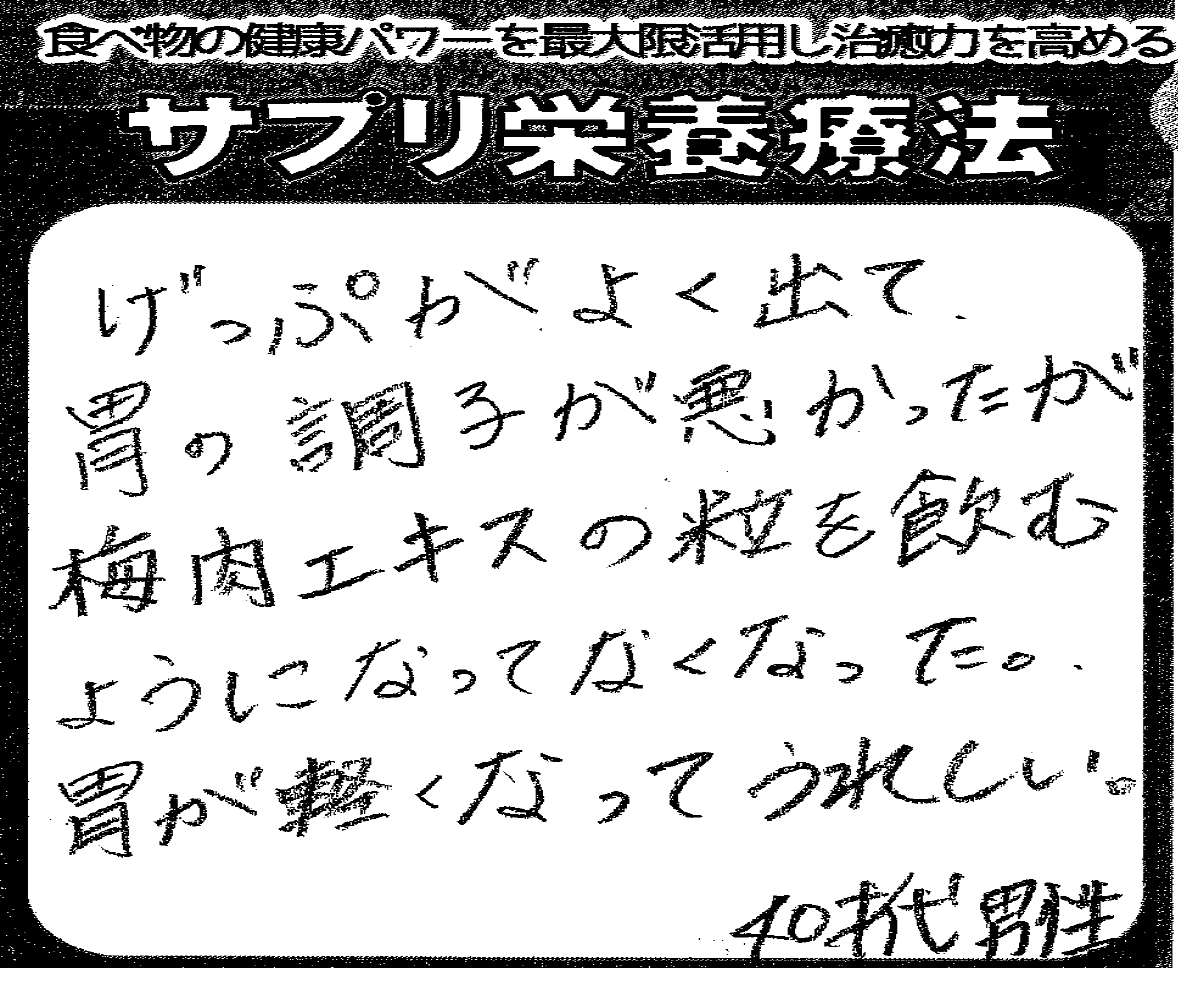 食べ物の健康パワーを最大限活用し治癒力を高める
サプリ栄養療法
げっぷがよく出て、
胃の調子が悪かったが
梅肉エキスの粒を飲む
ようになってなくなった。
胃が軽くなってうれしい。
40才代男性